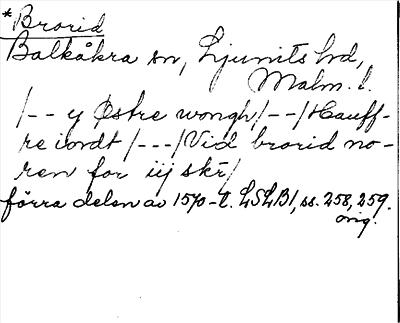 *Brorid
Balkåkra sn, Ljunits hd,
Malm. l.
/-- y Østre wongh /--/ Hauff-
re iordt /---/ Vid brorid no-
ren for iij skr̄/
förra delen av 1570-t. LSLB1, ss. 258, 259.
orig.